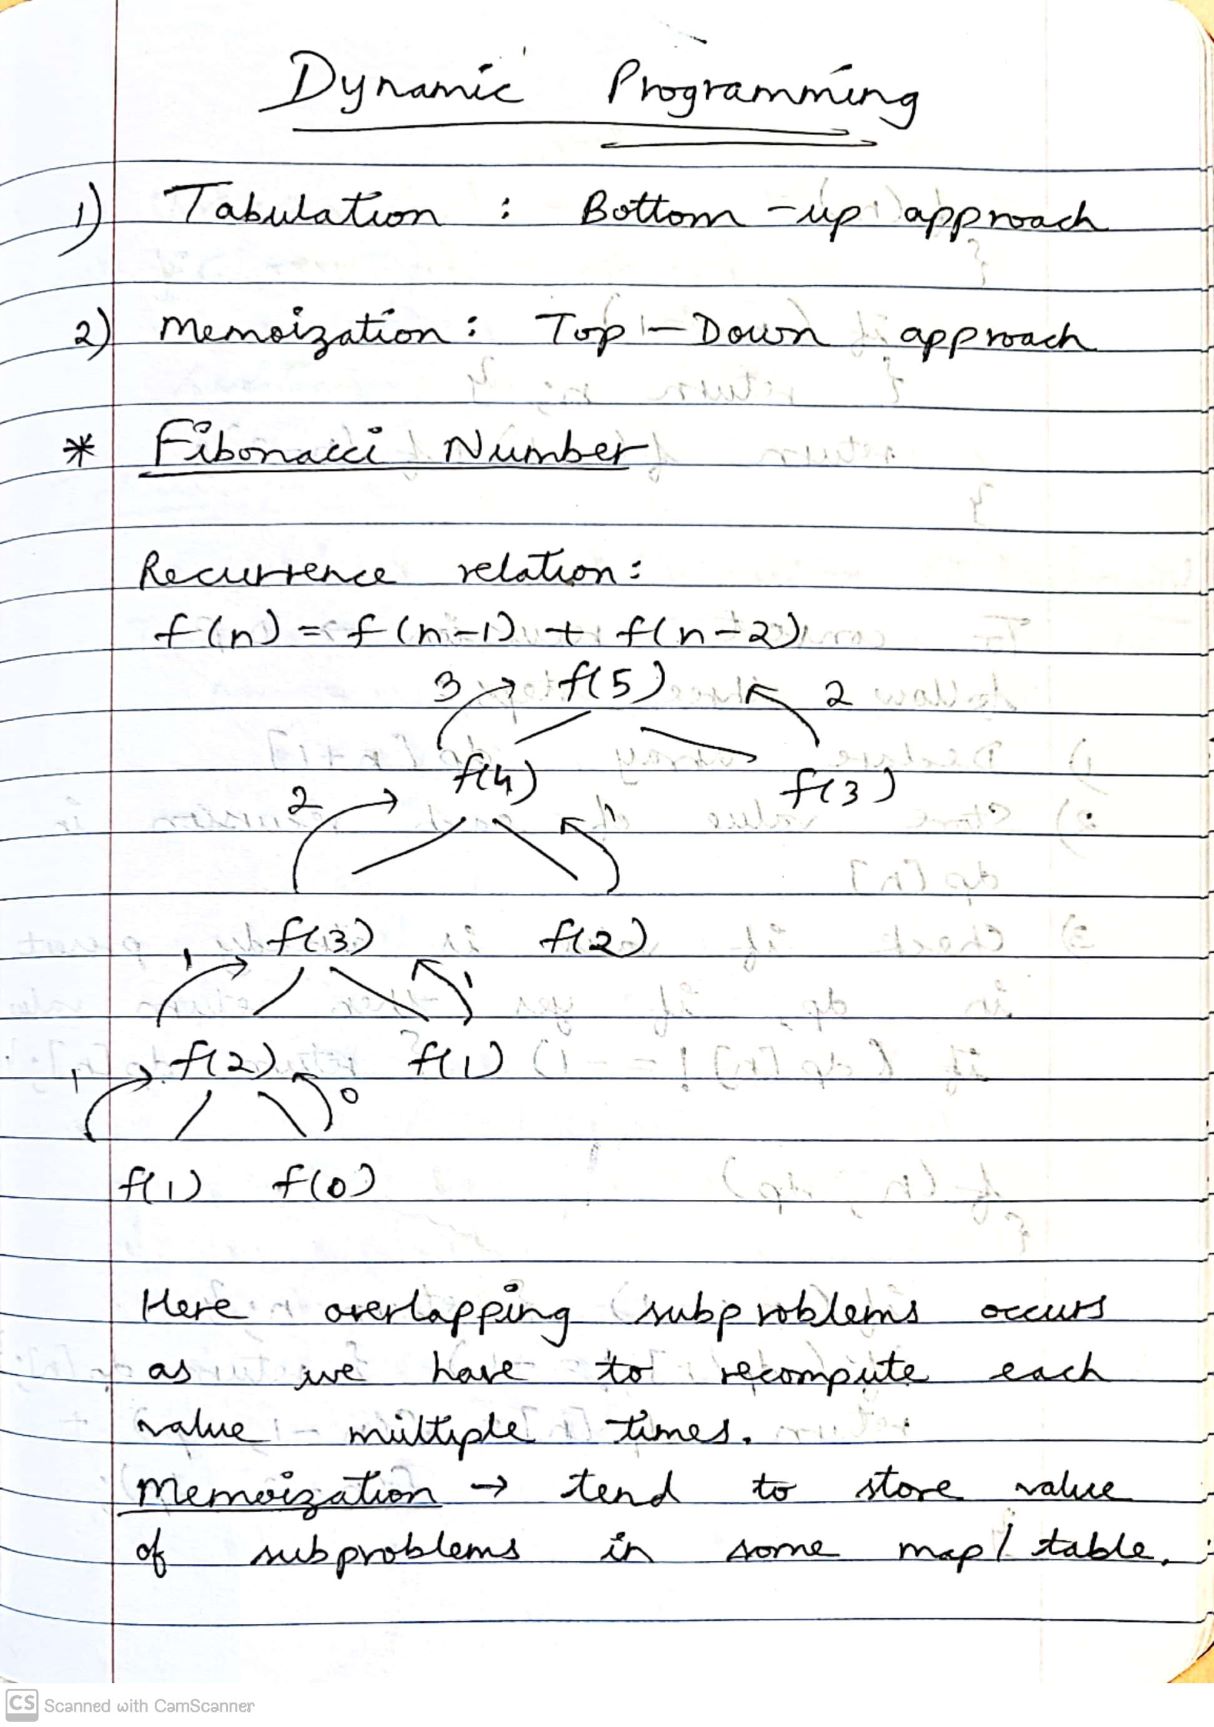 Dynamic Programming
1) Tabulation : Bottom-up approach
2) Memoization : Top-Down approach
* Fibonacci Number
Recurrence relation:
f(n) = f(n-1) + f(n-2)
3 f(5) 2
f(4) f(3)
2 1
f(3) f(2)
1 1
f(2) f(1)
1 0
f(1) f(0)
Here overlapping subproblems occurs
as we have to recompute each
value multiple times.
Memoization → tend to store value
of subproblems in some map/table.
CS Scanned with CamScanner